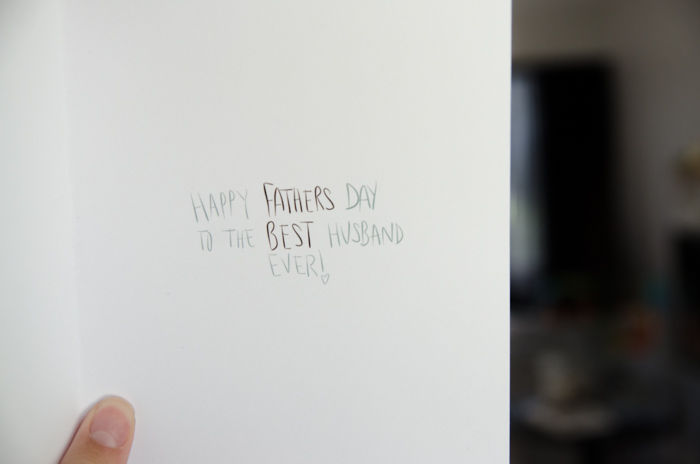 HAPPY FATHERS DAY
TO THE BEST HUSBAND
EVER!